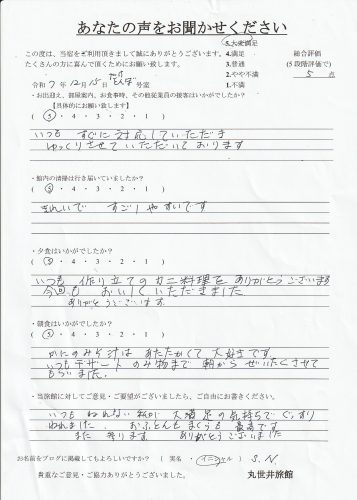 あなたの声をお聞かせください
この度は、当宿をご利用頂きまして誠にありがとうございます。
たくさんの方に喜んで頂くためにお願い致します。
5.大変満足
4.満足
3.普通
2.やや不満
1.不満
総合評価
(5段階評価で)
5 点
令和 7年 12月 15日 たけとんぼ 号室
・お出迎え、部屋案内、お食事時、その他従業員の接客はいかがでしたか?
【具体的にお願い致します】
( 5 ・ 4 ・ 3 ・ 2 ・ 1 )
いつも すぐに対応していただき
ゆっくりさせていただいております
・館内の清掃は行き届いていましたか?
( 5 ・ 4 ・ 3 ・ 2 ・ 1 )
きれいで すごしやすいです
・夕食はいかがでしたか?
( 5 ・ 4 ・ 3 ・ 2 ・ 1 )
いつも 作り立てのカニ料理を ありがとうございます
今回も おいしくいただきました
ありがとうございます。
・朝食はいかがでしたか?
( 5 ・ 4 ・ 3 ・ 2 ・ 1 )
かにのみそ汁は あたたかくて 大好きです
いつもデザート のみ物まで 朝から ぜいたくさせて
もらいました。
・当旅館に対してご意見・ご要望がございましたら、ご自由にお書きください。
いつも ねれない私が 大満足の気持ちで ぐっすり
ねれました。 おふとんも まくらも 最高です
また 参ります ありがとうございました
お名前をブログに掲載してもよろしいですか? ( 実名 ・ イニシャル ) S.N
貴重なご意見・ご協力ありがとうございました。
丸世井旅館